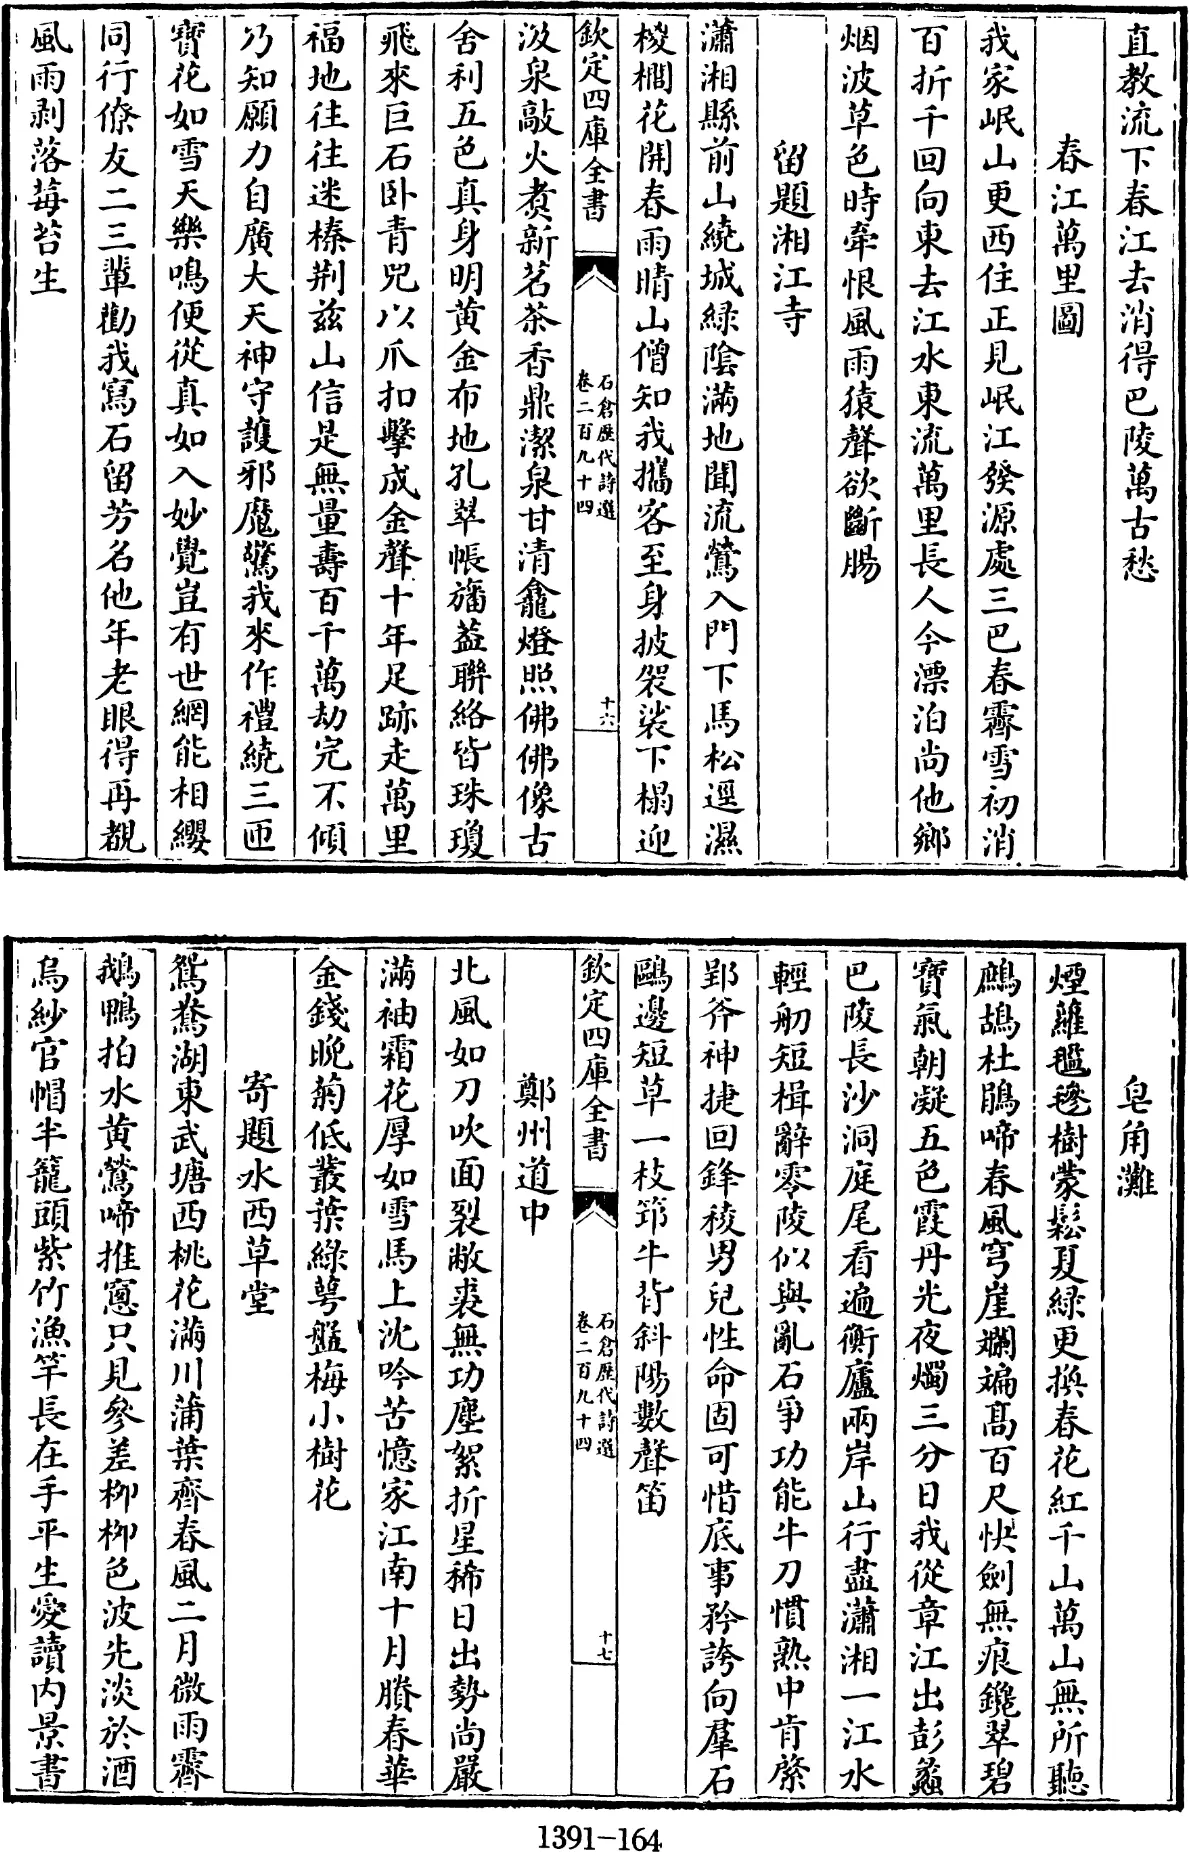 直教流下春江去消得巴陵萬古愁
春江萬里圖
我家岷山更西住正見岷江發源處三巴春霽雪初消
百折千回向東去江水東流萬里長人今漂泊尚他鄉
烟波草色時牽恨風雨猿聲欲斷腸
留題湘江寺
瀟湘縣前山繞城綠陰滿地聞流鶯入門下馬松逕濕
椶櫚花開春雨晴山僧知我攜客至身披袈裟下榻迎
欽定四庫全書
石倉歷代詩選
卷二百九十四
十六
汲泉敲火煑新茗茶香鼎潔泉甘清龕燈照佛佛像古
舍利五色真身明黄金布地孔翠帳旛葢聯絡皆珠瓊
飛來巨石卧青兕以爪扣擊成金聲十年足跡走萬里
福地往往迷榛荆兹山信是無量壽百千萬劫完不傾
乃知願力自廣大天神守護邪魔驚我來作禮繞三匝
寶花如雪天樂鳴便從真如入妙覺豈有世網能相纓
同行僚友二三輩勸我寫石留芳名他年老眼得再覩
風雨剥落莓苔生
皂角灘
煙蘿毿樹蒙鬆夏綠更換春花紅千山萬山無所聽
鷓鴣杜鵑啼春風穹崖斕斒髙百尺快劍無痕鑱翠碧
寶氣朝凝五色霞丹光夜燭三分日我從章江出彭蠡
巴陵長沙洞庭尾看遍衡廬兩岸山行盡瀟湘一江水
輕舠短楫辭零陵似與亂石爭功能牛刀慣熟中肯綮
郢斧神捷回鋒稜男兒性命固可惜底事矜誇向羣石
鷗邊短草一枝笻牛背斜陽數聲笛
欽定四庫全書
石倉歷代詩選
卷二百九十四
十七
鄭州道中
北風如刀吹面裂敝裘無功塵絮折星稀日出勢尚嚴
滿袖霜花厚如雪馬上沈吟苦憶家江南十月賸春華
金錢晚菊低叢葉綠萼盤梅小樹花
寄題水西草堂
鴛鴦湖東武塘西桃花滿川蒲葉齊春風二月微雨霽
鵝鴨拍水黄鶯啼推窻只見參差柳柳色波光淡於酒
烏紗官帽半籠頭紫竹漁竿長在手平生愛讀内景書
1391-164